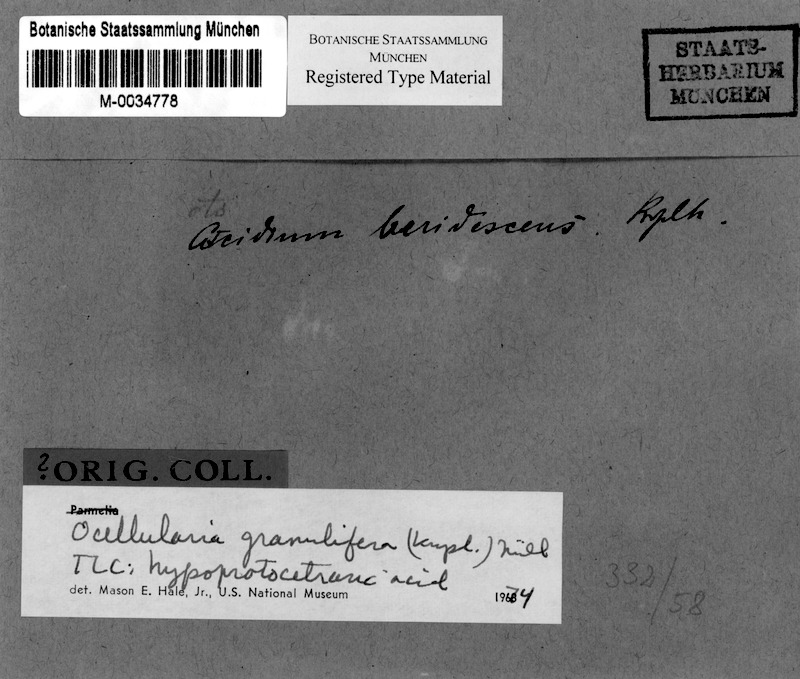 Botanische Staatssammlung München
M-0034778
BOTANISCHE STAATSSAMMLUNG
MÜNCHEN
Registered Type Material
STAATS-
HERBARIUM
MÜNCHEN
Krplh.
? ORIG. COLL.
Parmelia
Ocellularia granulifera (Krempl.) Müll
TLC: hypoprotocetraric acid
det. Mason E. Hale, Jr., U.S. National Museum
1974
332/58